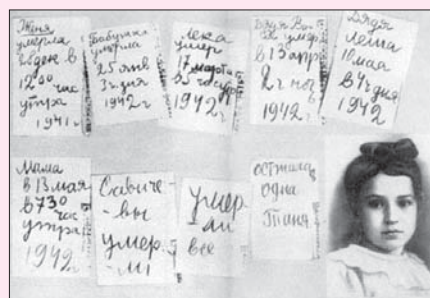 Женя
умерла
28 дек в
12 00 час
утра
1941 г
Бабушка
умерла
25 янв
3 ч дня
1942 г
Лека
умер
17 марта
в 5 час утр
1942 г
Дядя
в 13 апр
2 ч ноч
1942 г
Дядя
Леша
10 мая
в 4 ч дня
1942
Мама
в 13 мая
в 7 30
час
утра
1942 г
Савиче
-вы
умер
-ли
умер
-ли
все
осталась
одна
Таня